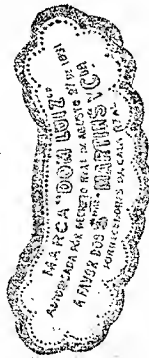 MARCA "DOM LUIZ"
AUTORISADA POR DECRETO REAL DE AGOSTO DE 1871
A FAVOR DOS Snrs MARTINS & Cia
FORNECEDORES DA CASA REAL